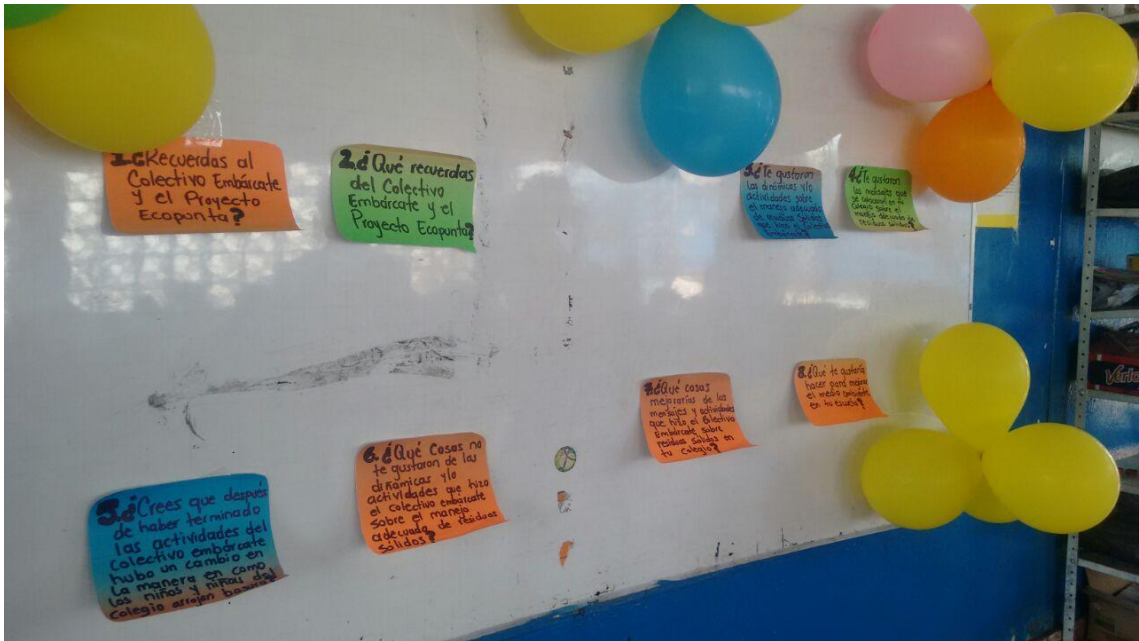 1.¿Recuerdas al
Colectivo Embárcate
y el Proyecto
Ecopunta?
2.¿Qué recuerdas
del Colectivo
Embárcate y el
Proyecto Ecopunta?
3.¿Te gustaron
las dinámicas y/o
actividades sobre
el manejo adecuado
de residuos sólidos
que hizo el Colectivo
Embárcate?
4.¿Te gustaron
los mensajes que
se colocaron en tu
colegio sobre el
manejo adecuado de
residuos sólidos?
5.¿Crees que después
de haber terminado
las actividades del
Colectivo embárcate
hubo un cambio en
la manera en como
los niños y niñas del
colegio arrojan basura?
6.¿Qué Cosas no
te gustaron de las
dinámicas y/o
actividades que hizo
el colectivo embárcate
sobre el manejo
adecuado de residuos
sólidos?
7.¿Qué cosas
mejorarías de los
mensajes y actividades
que hizo el Colectivo
Embárcate sobre
residuos sólidos en
tu colegio?
8.¿Qué te gustaría
hacer para mejorar
el medio ambiente
en tu escuela?